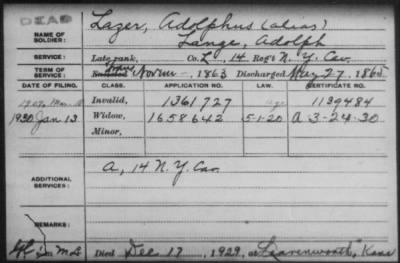 DEAD
NAME OF SOLDIER: Lazer, Adolphus (alias)
Lange, Adolph
SERVICE: Late rank, Co. L, 14 Reg't N. Y. Cav.
TERM OF SERVICE: Enrolled 1863 Discharged May 27, 1865
DATE OF FILING. CLASS. APPLICATION NO. LAW. CERTIFICATE NO.
1907, Invalid, 1361727 age 1139484
1930 Jan 13 Widow, 1658642 5-1-20 A 3-24-30
Minor,
ADDITIONAL SERVICES: A, 14 N.Y. Cav.
REMARKS:
Died Dec 17, 1929, at Leavenworth, Kans